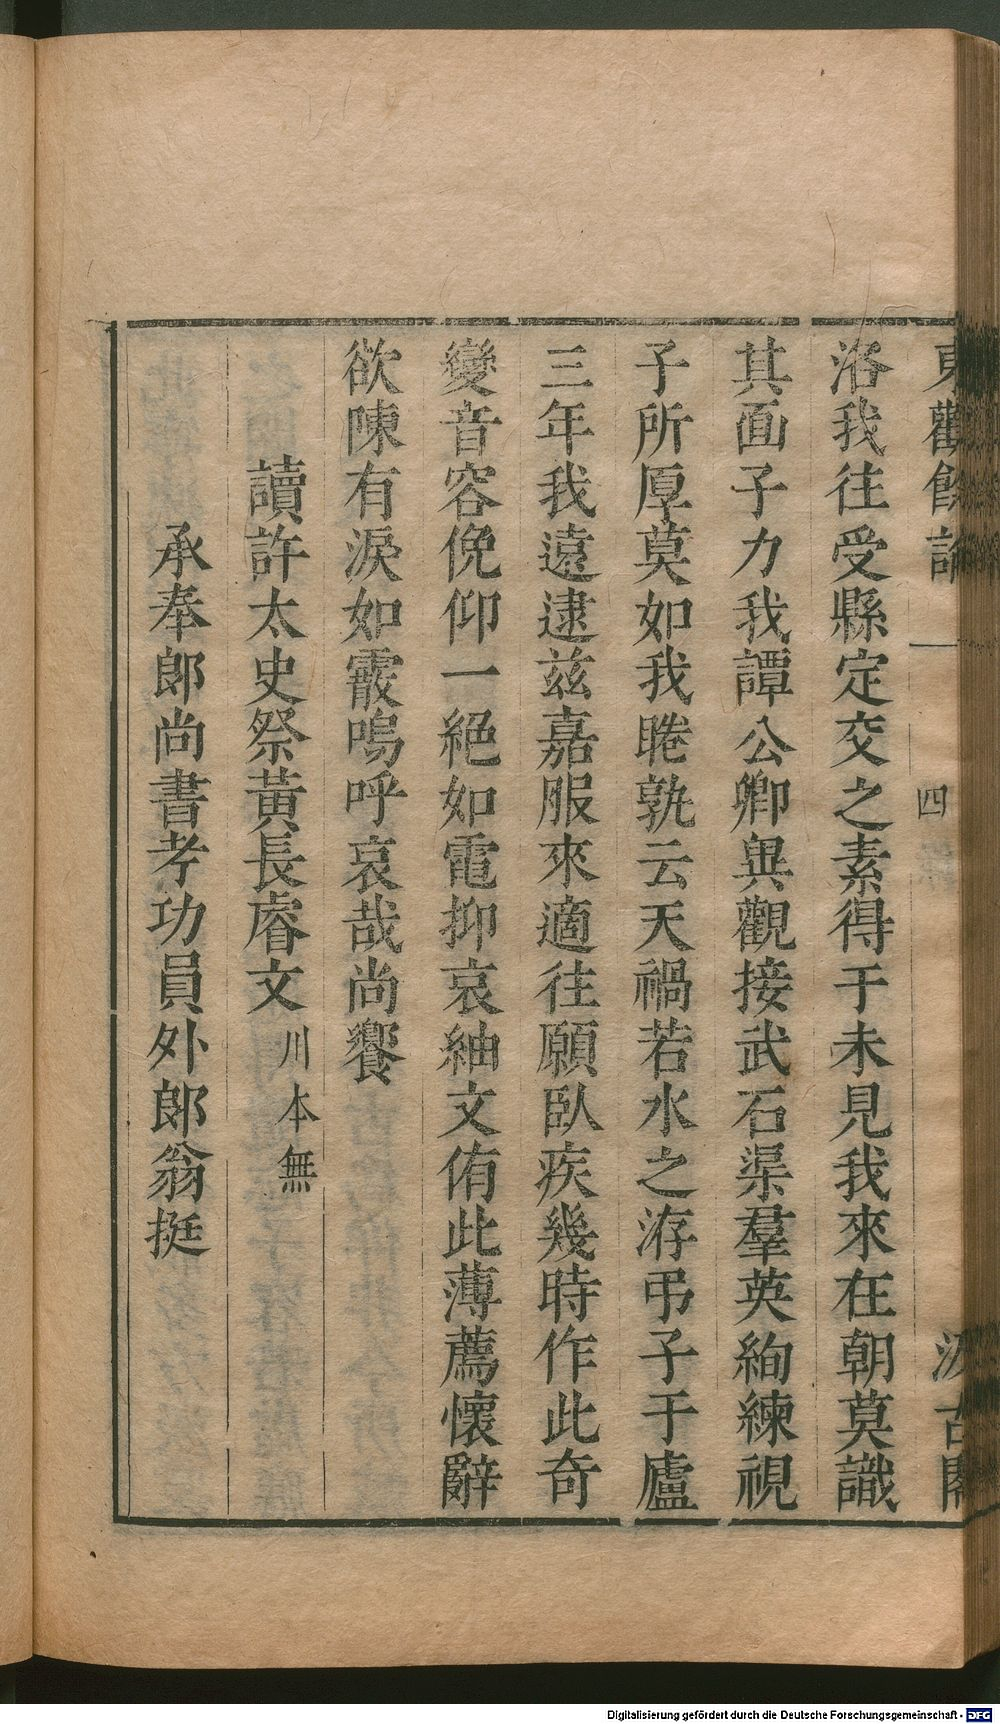 東觀餘論 一 四 汲古閣
洛我往受縣定交之素得于未見我來在朝莫識
其面子力我譚公卿與觀接武石渠羣英絢練視
子所厚莫如我睠孰云天禍若水之洊弔子于廬
三年我遠逮兹嘉服來適往願臥疾幾時作此奇
變音容俛仰一絕如電抑哀紬文侑此薄薦懷辭
欲陳有淚如霰嗚呼哀哉尚饗
讀許太史祭黃長睿文 川本無
承奉郎尚書考功員外郎翁挺
Digitalisierung gefördert durch die Deutsche Forschungsgemeinschaft - DFG